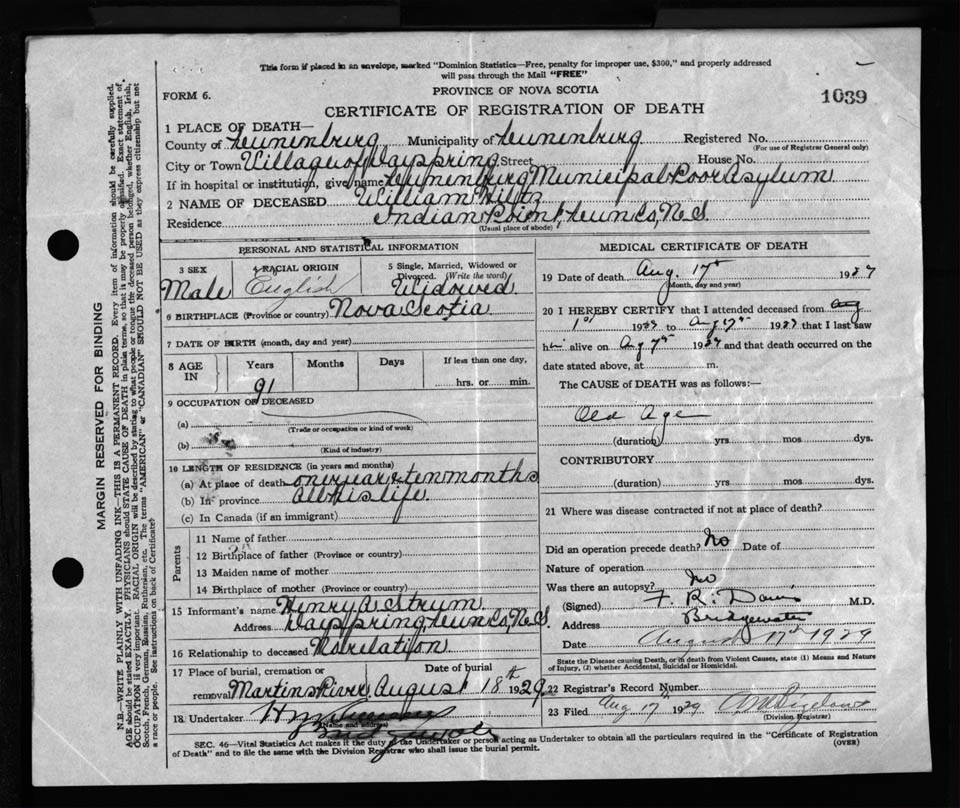 This form if placed in an envelope, marked "Dominion Statistics—Free, penalty for improper use, $300," and properly addressed
will pass through the Mail "FREE"
PROVINCE OF NOVA SCOTIA
FORM 6.
1039
CERTIFICATE OF REGISTRATION OF DEATH
1 PLACE OF DEATH—
County of Lunenburg Municipality of Lunenburg Registered No.
(For use of Registrar General only)
City or Town Village of Dayspring Street House No.
If in hospital or institution, give name Lunenburg Municipal Poor Asylum
2 NAME OF DECEASED William Hiltz
Residence Indian Point, Lun. Co, N.S.
(Usual place of abode)
PERSONAL AND STATISTICAL INFORMATION
3 SEX
Male
4 RACIAL ORIGIN
English
5 Single, Married, Widowed or
Divorced. (Write the word)
Widowed.
6 BIRTHPLACE (Province or country) Nova Scotia
7 DATE OF BIRTH (month, day and year)
8 AGE
IN
Years
91
Months
Days
If less than one day,
hrs. or min.
9 OCCUPATION OF DECEASED
(a)
(Trade or occupation or kind of work)
(b)
(Kind of industry)
10 LENGTH OF RESIDENCE (in years and months)
(a) At place of death one year & ten months
(b) In province All his life
(c) In Canada (if an immigrant)
Parents
11 Name of father
12 Birthplace of father (Province or country)
13 Maiden name of mother
14 Birthplace of mother (Province or country)
15 Informant's name Henry A Strum
Address Dayspring, Lun. Co, N.S.
16 Relationship to deceased No relation
17 Place of burial, cremation or
removal Martins River
Date of burial
August 18th 1929
18 Undertaker
(Name and address)
MEDICAL CERTIFICATE OF DEATH
19 Date of death Aug. 17th 1927
(Month, day and year)
20 I HEREBY CERTIFY that I attended deceased from Aug
1st 1927 to Aug 17th 1927 that I last saw
him alive on Aug 7th 1927 and that death occurred on the
date stated above, at m.
The CAUSE of DEATH was as follows:—
Old Age
(duration) yrs mos dys.
CONTRIBUTORY
(duration) yrs mos dys.
21 Where was disease contracted if not at place of death?
Did an operation precede death? No Date of
Nature of operation
Was there an autopsy? No
(Signed) F. R. Davis M.D.
Address Bridgewater
Date August 17th 1929
State the Disease causing Death, or in death from Violent Causes, state (1) Means and Nature
of Injury, (2) whether Accidental, Suicidal or Homicidal.
22 Registrar's Record Number
23 Filed Aug 17th 1929
(Division Registrar)
SEC. 46—Vital Statistics Act makes it the duty of the Undertaker or person acting as Undertaker to obtain all the particulars required in the "Certificate of Registration
of Death" and to file the same with the Division Registrar who shall issue the burial permit.
(OVER)
MARGIN RESERVED FOR BINDING
N.B.—WRITE PLAINLY WITH UNFADING INK—THIS IS A PERMANENT RECORD. Every item of information should be carefully supplied.
AGE should be stated EXACTLY. PHYSICIANS should STATE CAUSE OF DEATH in plain terms, so that it may be properly classified. Exact statement of
OCCUPATION is very important. RACIAL ORIGIN will be described by stating to what people or tongue the deceased person belonged, whether English, Irish,
Scotch, French, German, Russian, Ruthenian, etc. The terms "AMERICAN" or "CANADIAN" SHOULD NOT BE USED as they express citizenship but not
a race or people. See instructions on back of Certificate.